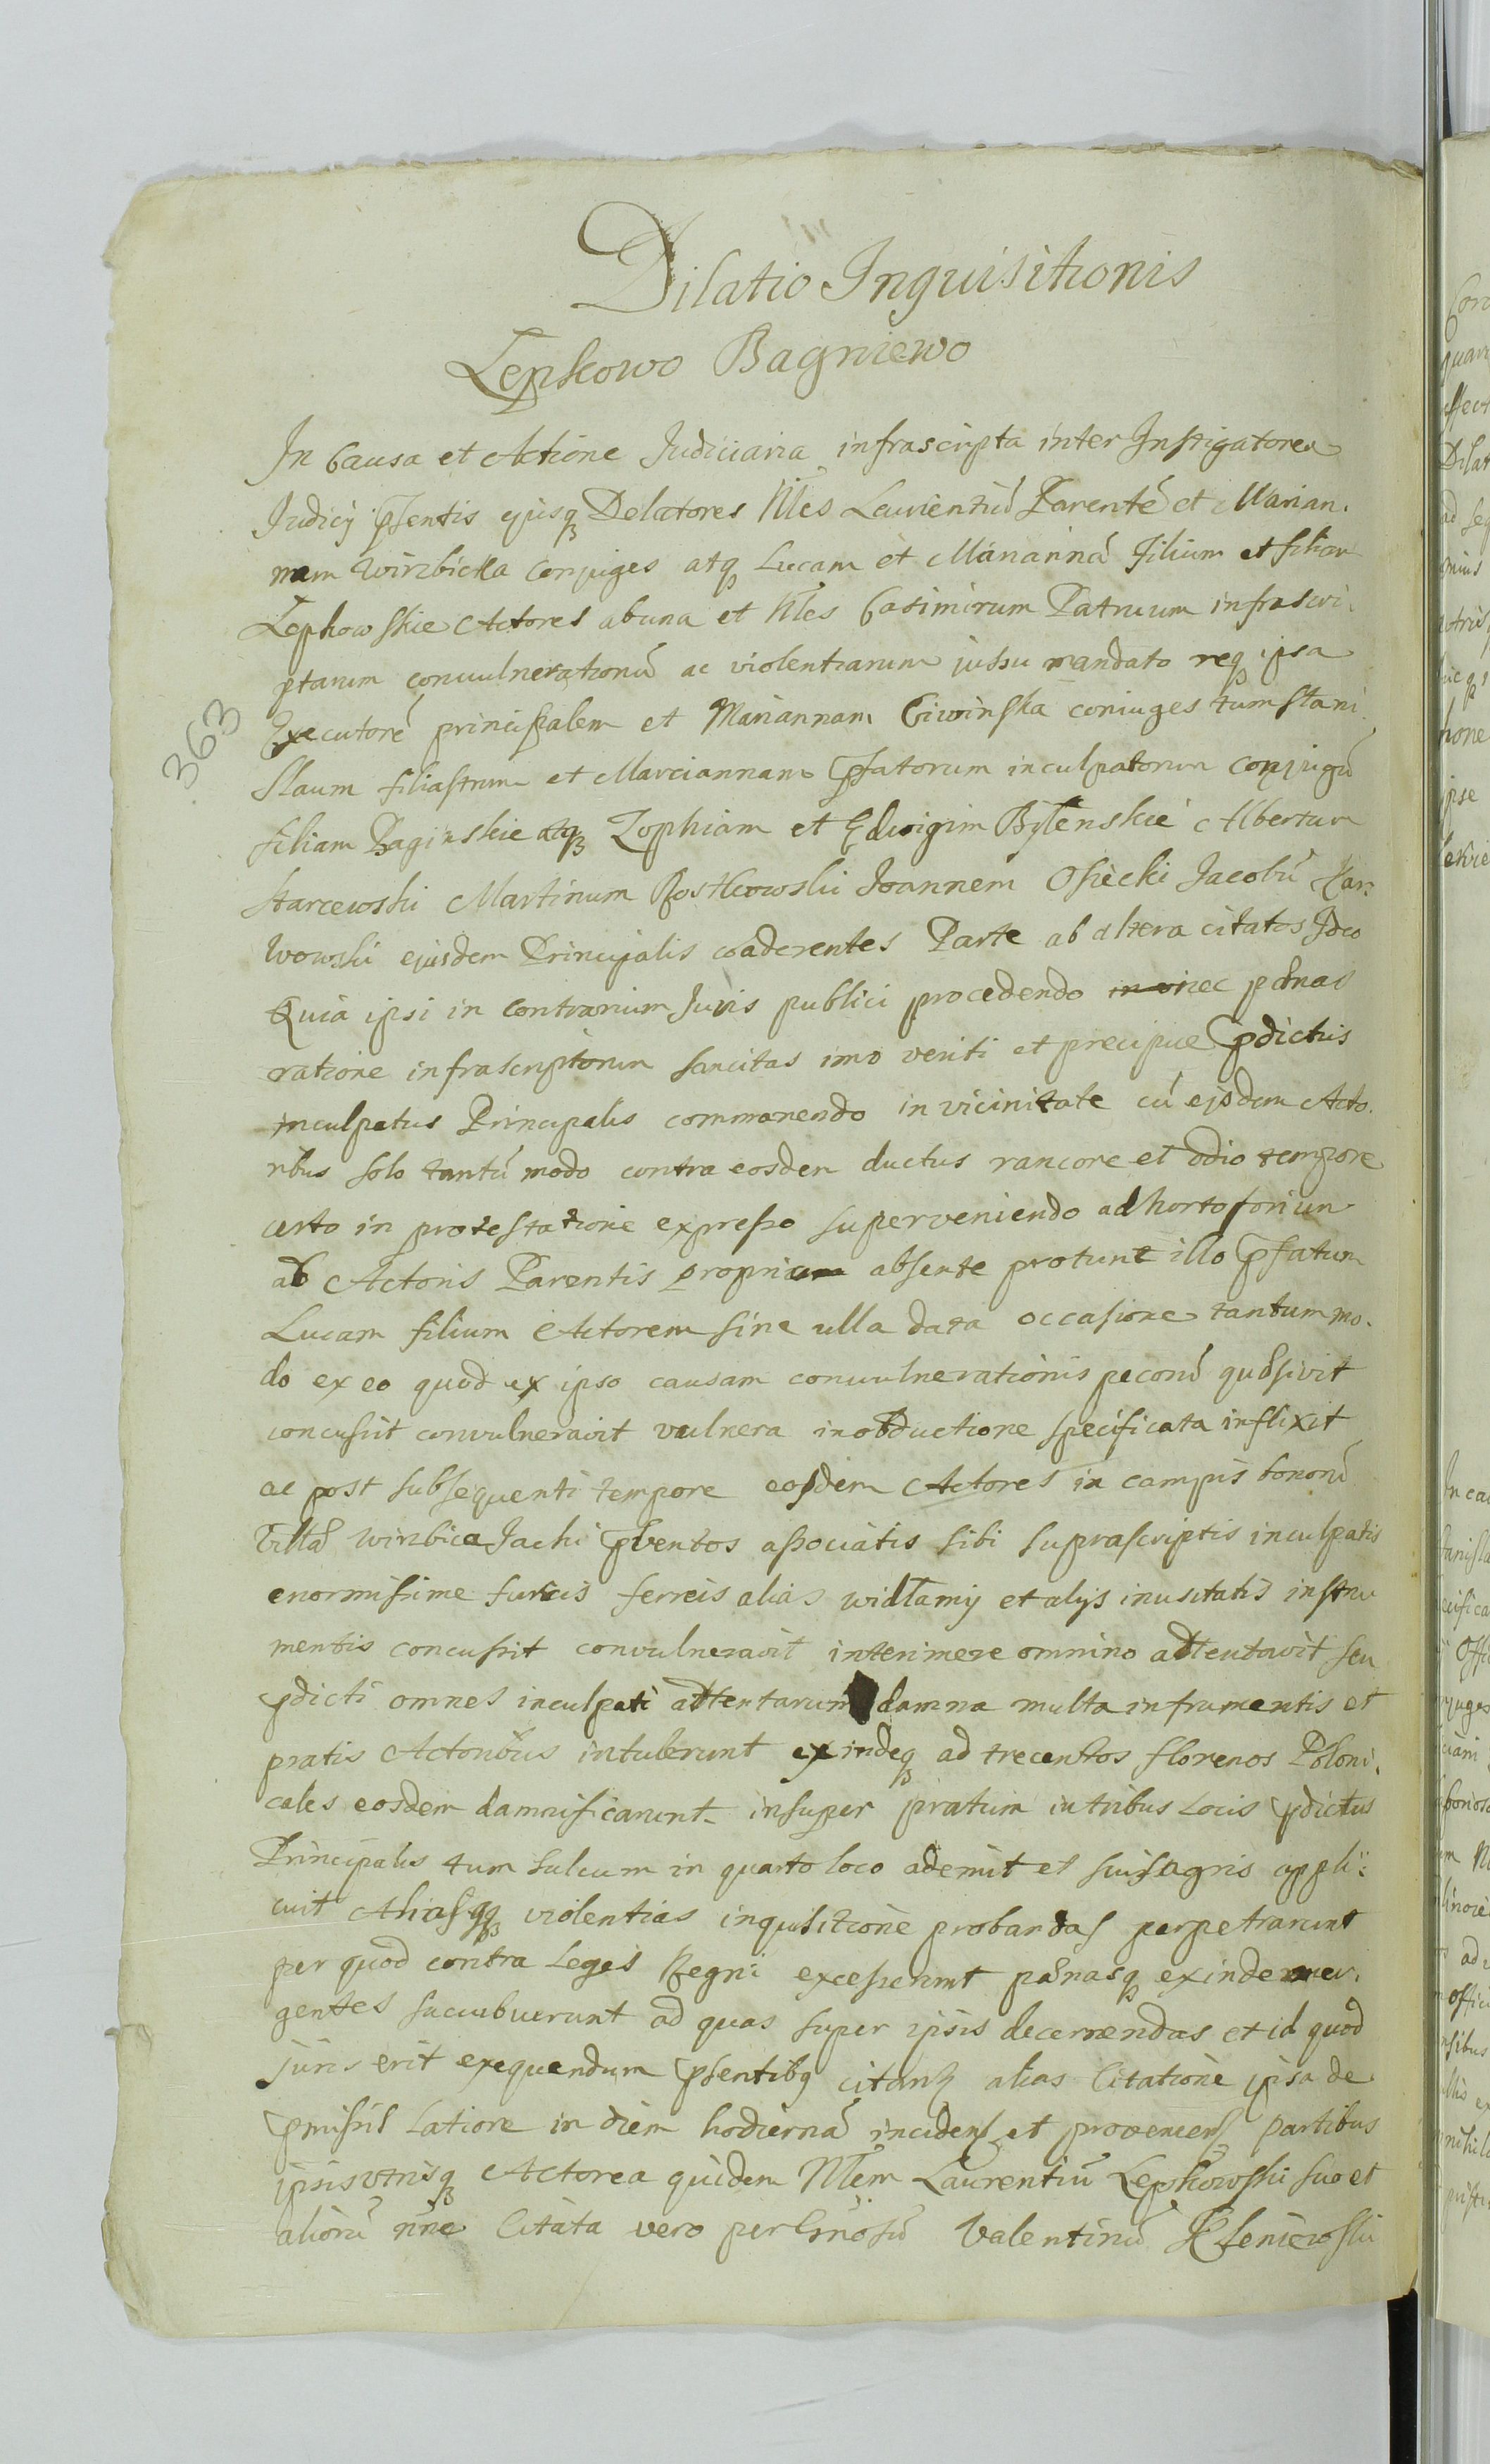 Dilatio Inquisitionis
Lepkowo Bagniewo
In Causa et Actione Judiciaria infrascripta inter Instigatorea
Judicij pntis ejusq Delatores Nles Laurentiũ Parentẽ et Marian.
nam Wirzbicka conjuges atq Lucam et Mariannã Filium et filiam
Lepkowskie Actores ab una et Nles Casimirum Patruum infrascri.
ptarum convulnerationũ ac violentiarum jussu mandato req ipsa
363
Executorẽ principalem et Mariannam Ciwinska coniuges tum Stani
slaum filiastrum et Marciannam pfatorum inculpatorum conjugũ
filiam Baginskie atq Zophiam et Edwigim Bylenskie Albertum
Starcewski Martinum Rostkowski Joannem Osiecki Jacobũ Kar:
wowski ejusdem Principalis coaderentes Parte ab altera citatos Ideo
Quia ipsi in contrarium Juris publici procedendo nec pœnas
ratione infrascriptorum sancitas imo veriti et precipue pdictus
inculpatus Principalis commanendo in vicinitate cũ ejsdem Acto.
ribus solo tantũ modo contra eosdem ductus rancore et odio tempore
certo in protestatione expresso superveniendo ad hortoforium
ab Actoris Parentis propri absente protunc illo pfatum
Lucam filium Actorem sine ulla data occasione tantum mo.
do ex eo quod ex ipso causam convulnerationis pecorũ quæsivit
concussit convulneravit vulnera in obductione specificata inflixit
ac post subsequenti tempore eosdem Actores in campis bonorũ
Villæ Wirzbica Jachi pventos associatis sibi suprascriptis inculpatis
enormissime furcis ferreis alias widłamy et alys inusitatis instru
mentis concussit convulneravit interimere omnino adtentavit seu
pdicti omnes inculpati attentarunt damna multa in frumentis et
pratis Actoribus intulerunt exindeq ad trecentos florenos Poloni.
cales eosdem damnificarunt insuper pratum in tribus Locis pdictus
Principalis tum sulcum in quarto loco ademit et suis agris appli:
cuit Aliasqq violentias inquisitione probandas perpetrarunt
per quod contra Leges Regni excesserunt pœnasq exinde emer.
gentes succubuerunt ad quas super ipsis decernendas et id quod
juris erit exequendum psentibq citantz alias Citatione ipsa de
pmissis Latiore in diem hodiernã inciden et provenien partibus
ipsis utrisq Actorea quidem Nlem Laurentiũ Lepkowski suo et
aliorũ nne Citata vero per Gnosũ Valentinũ